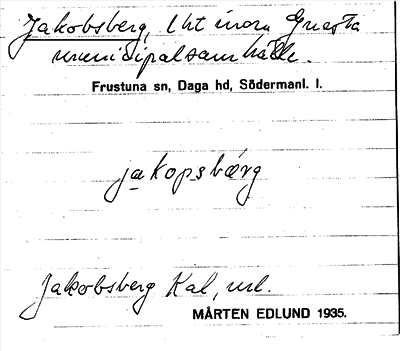 Jakobsberg, lht inom Gnesta
municipalsamhälle.
Frustuna sn, Daga hd, Södermanl. l.
jakopsbærg
Jakobsberg Kal, url.
MÅRTEN EDLUND 1935.